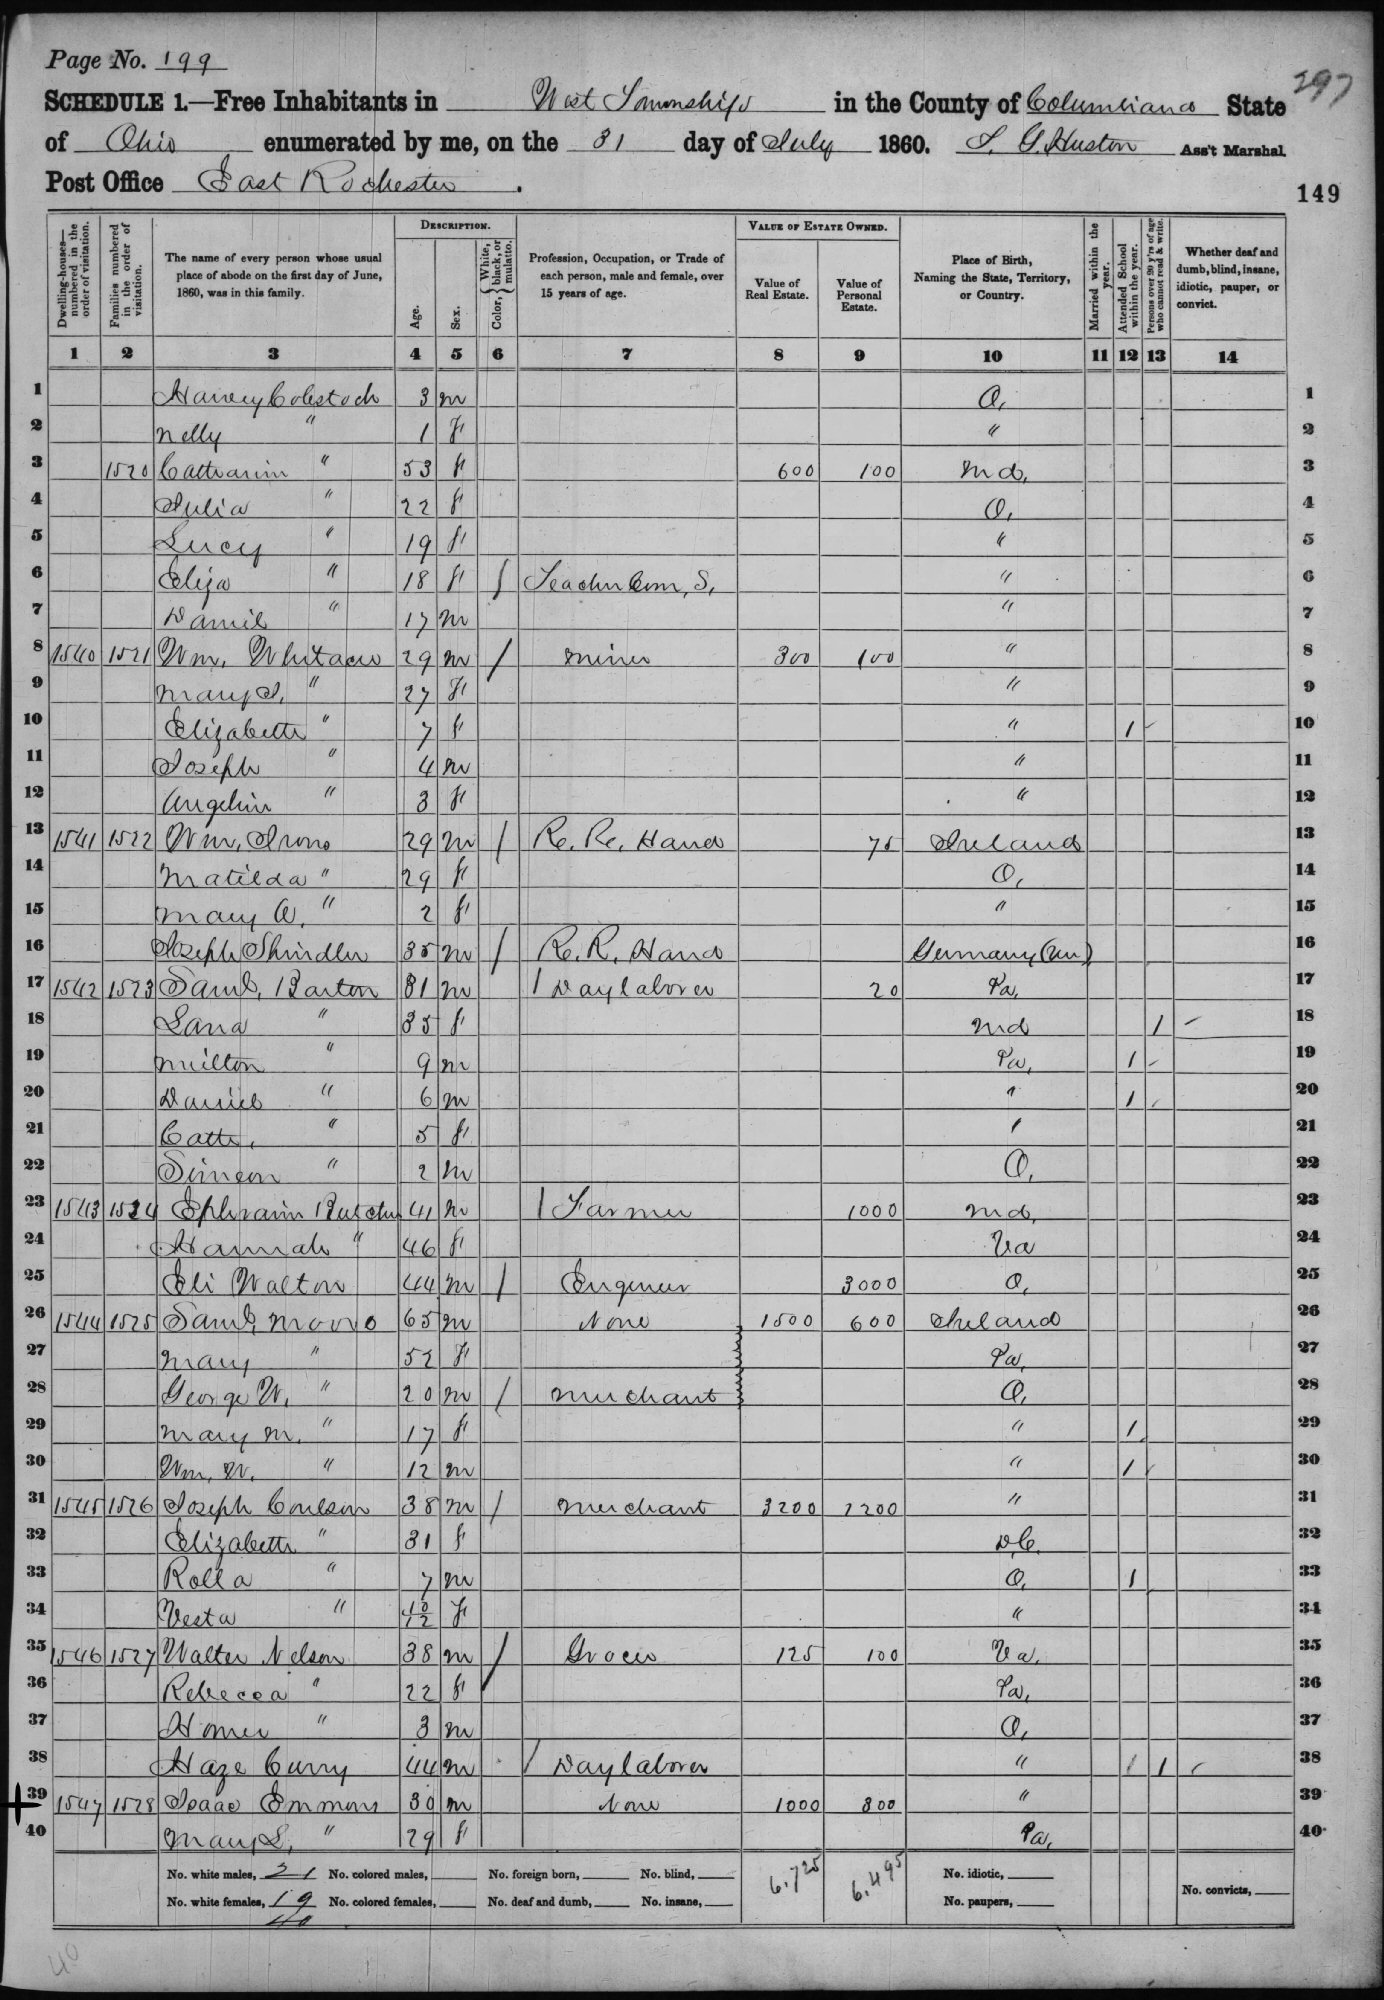 Page No. 199
297
SCHEDULE 1.—Free Inhabitants in West Township in the County of Columbiana State
of Ohio enumerated by me, on the 31 day of July 1860. S. G. Huston Ass't Marshal
Post Office East Rochester.
149
Dwelling-houses—numbered in the order of visitation. Families numbered in the order of visitation. The name of every person whose usual place of abode on the first day of June, 1860, was in this family. DESCRIPTION. Age. Sex. Color, White, black, or mulatto. Profession, Occupation, or Trade of each person, male and female, over 15 years of age. VALUE OF ESTATE OWNED. Value of Real Estate. Value of Personal Estate. Place of Birth, Naming the State, Territory, or Country. Married within the year. Attended School within the year. Persons over 20 y'rs of age who cannot read & write. Whether deaf and dumb, blind, insane, idiotic, pauper, or convict.
1 2 3 4 5 6 7 8 9 10 11 12 13 14
1 Harvey Colestock 3 m O, 1
2 Nelly " 1 f " 2
3 1520 Catharin " 53 f 600 100 Md, 3
4 Julia " 22 f O, 4
5 Lucy " 19 f " 5
6 Eliza " 18 f / Teacher Com, S, " 6
7 Daniel " 17 m " 7
8 1540 1521 Wm, Whitacre 29 m / Miner 300 100 " 8
9 Mary J, " 27 f " 9
10 Elizabeth " 7 f " 1 10
11 Joseph " 4 m " 11
12 Angelin " 3 f " 12
13 1541 1522 Wm, Irons 29 m / R. R. Hand 75 Ireland 13
14 Matilda " 29 f O, 14
15 Mary A, " 2 f " 15
16 Joseph Shindler 35 m / R. R. Hand Germany 16
17 1542 1523 Saml, Barton 31 m / Day laborer 20 Pa, 17
18 Lana " 35 f Md 1 18
19 Milton " 9 m Pa, 1 19
20 Daniel " 6 m " 1 20
21 Cath, " 5 f " 21
22 Simeon " 2 m O, 22
23 1543 1524 Ephraim 41 m / Farmer 1000 Md, 23
24 Hannah " 46 f Va 24
25 Eli Walton 44 m / Engineer 3000 O, 25
26 1544 1525 Saml, Moore 65 m None 1500 600 Ireland 26
27 Mary " 52 f Pa, 27
28 George W, " 20 m / Merchant O, 28
29 Mary M, " 17 f " 1 29
30 Wm, W, " 12 m " 1 30
31 1545 1526 Joseph Coulson 38 m / Merchant 3200 1200 " 31
32 Elizabeth " 31 f D.C. 32
33 Rolla " 7 m O, 1 33
34 Vesta " 10/12 f " 34
35 1546 1527 Walter Nelson 38 m / Grocer 125 100 Va, 35
36 Rebecca " 22 f Pa, 36
37 Homer " 3 m O, 37
38 Haze Curry 44 m / Day laborer " 1 1 38
39 1547 1528 Isaac Emmons 30 m None 1000 300 " 39
40 Mary L, " 29 f Pa, 40
No. white males, 21 No. colored males, No. foreign born, No. blind, 6,725 6,495 No. idiotic,
No. white females, 19 No. colored females, No. deaf and dumb, No. insane, No. paupers, No. convicts,
40
40